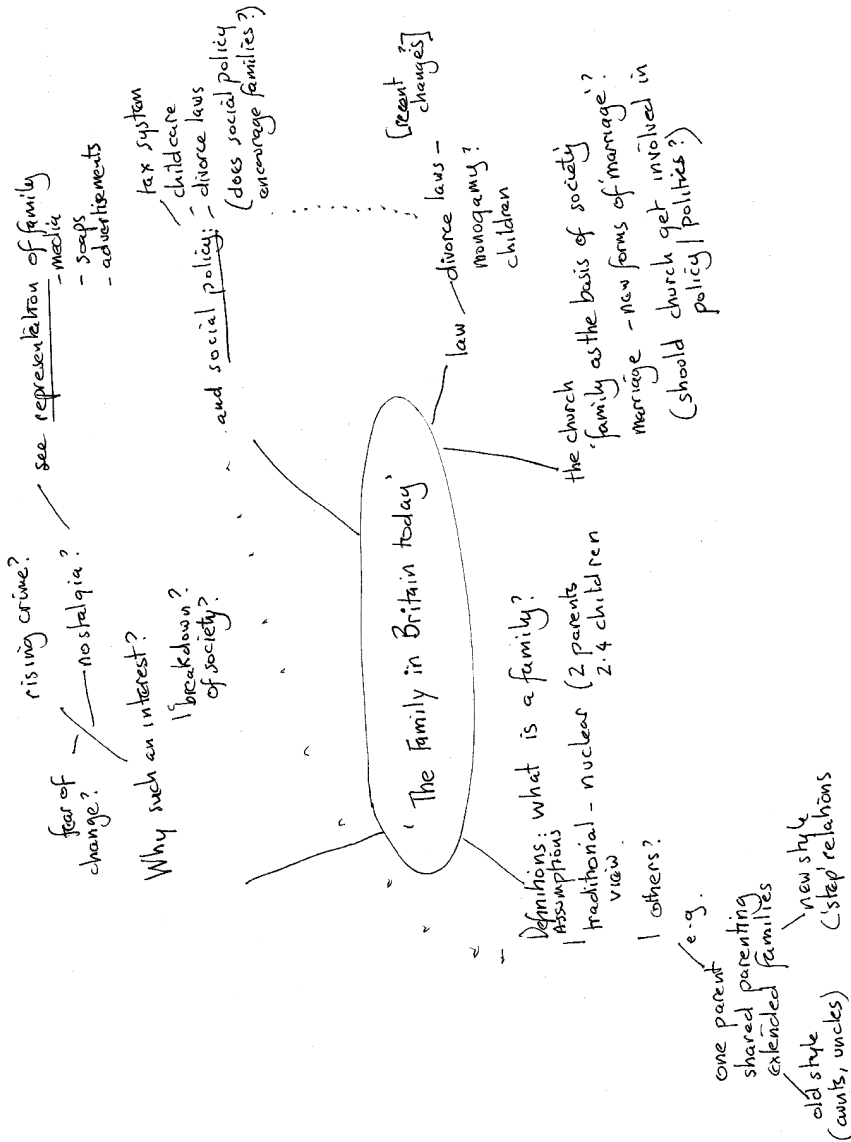 'The Family in Britain today'
Why such an interest?
fear of
change?
rising crime?
nostalgia?
breakdown?
of society?
see representation of family
- media
- soaps
- advertisements
and social policy:
tax system
childcare
- divorce laws
(does social policy
encourage families?)
law
divorce laws -
monogamy?
children
[recent
changes?]
the church
'family as the basis of society
marriage - new forms of 'marriage'?
(should church get involved in
policy / politics?)
Definitions: what is a family?
Assumptions
traditional - nuclear (2 parents
view.
2.4 children
others?
e.g.
one parent
shared parenting
extended families
old style
(aunts, uncles)
new style
('step' relations